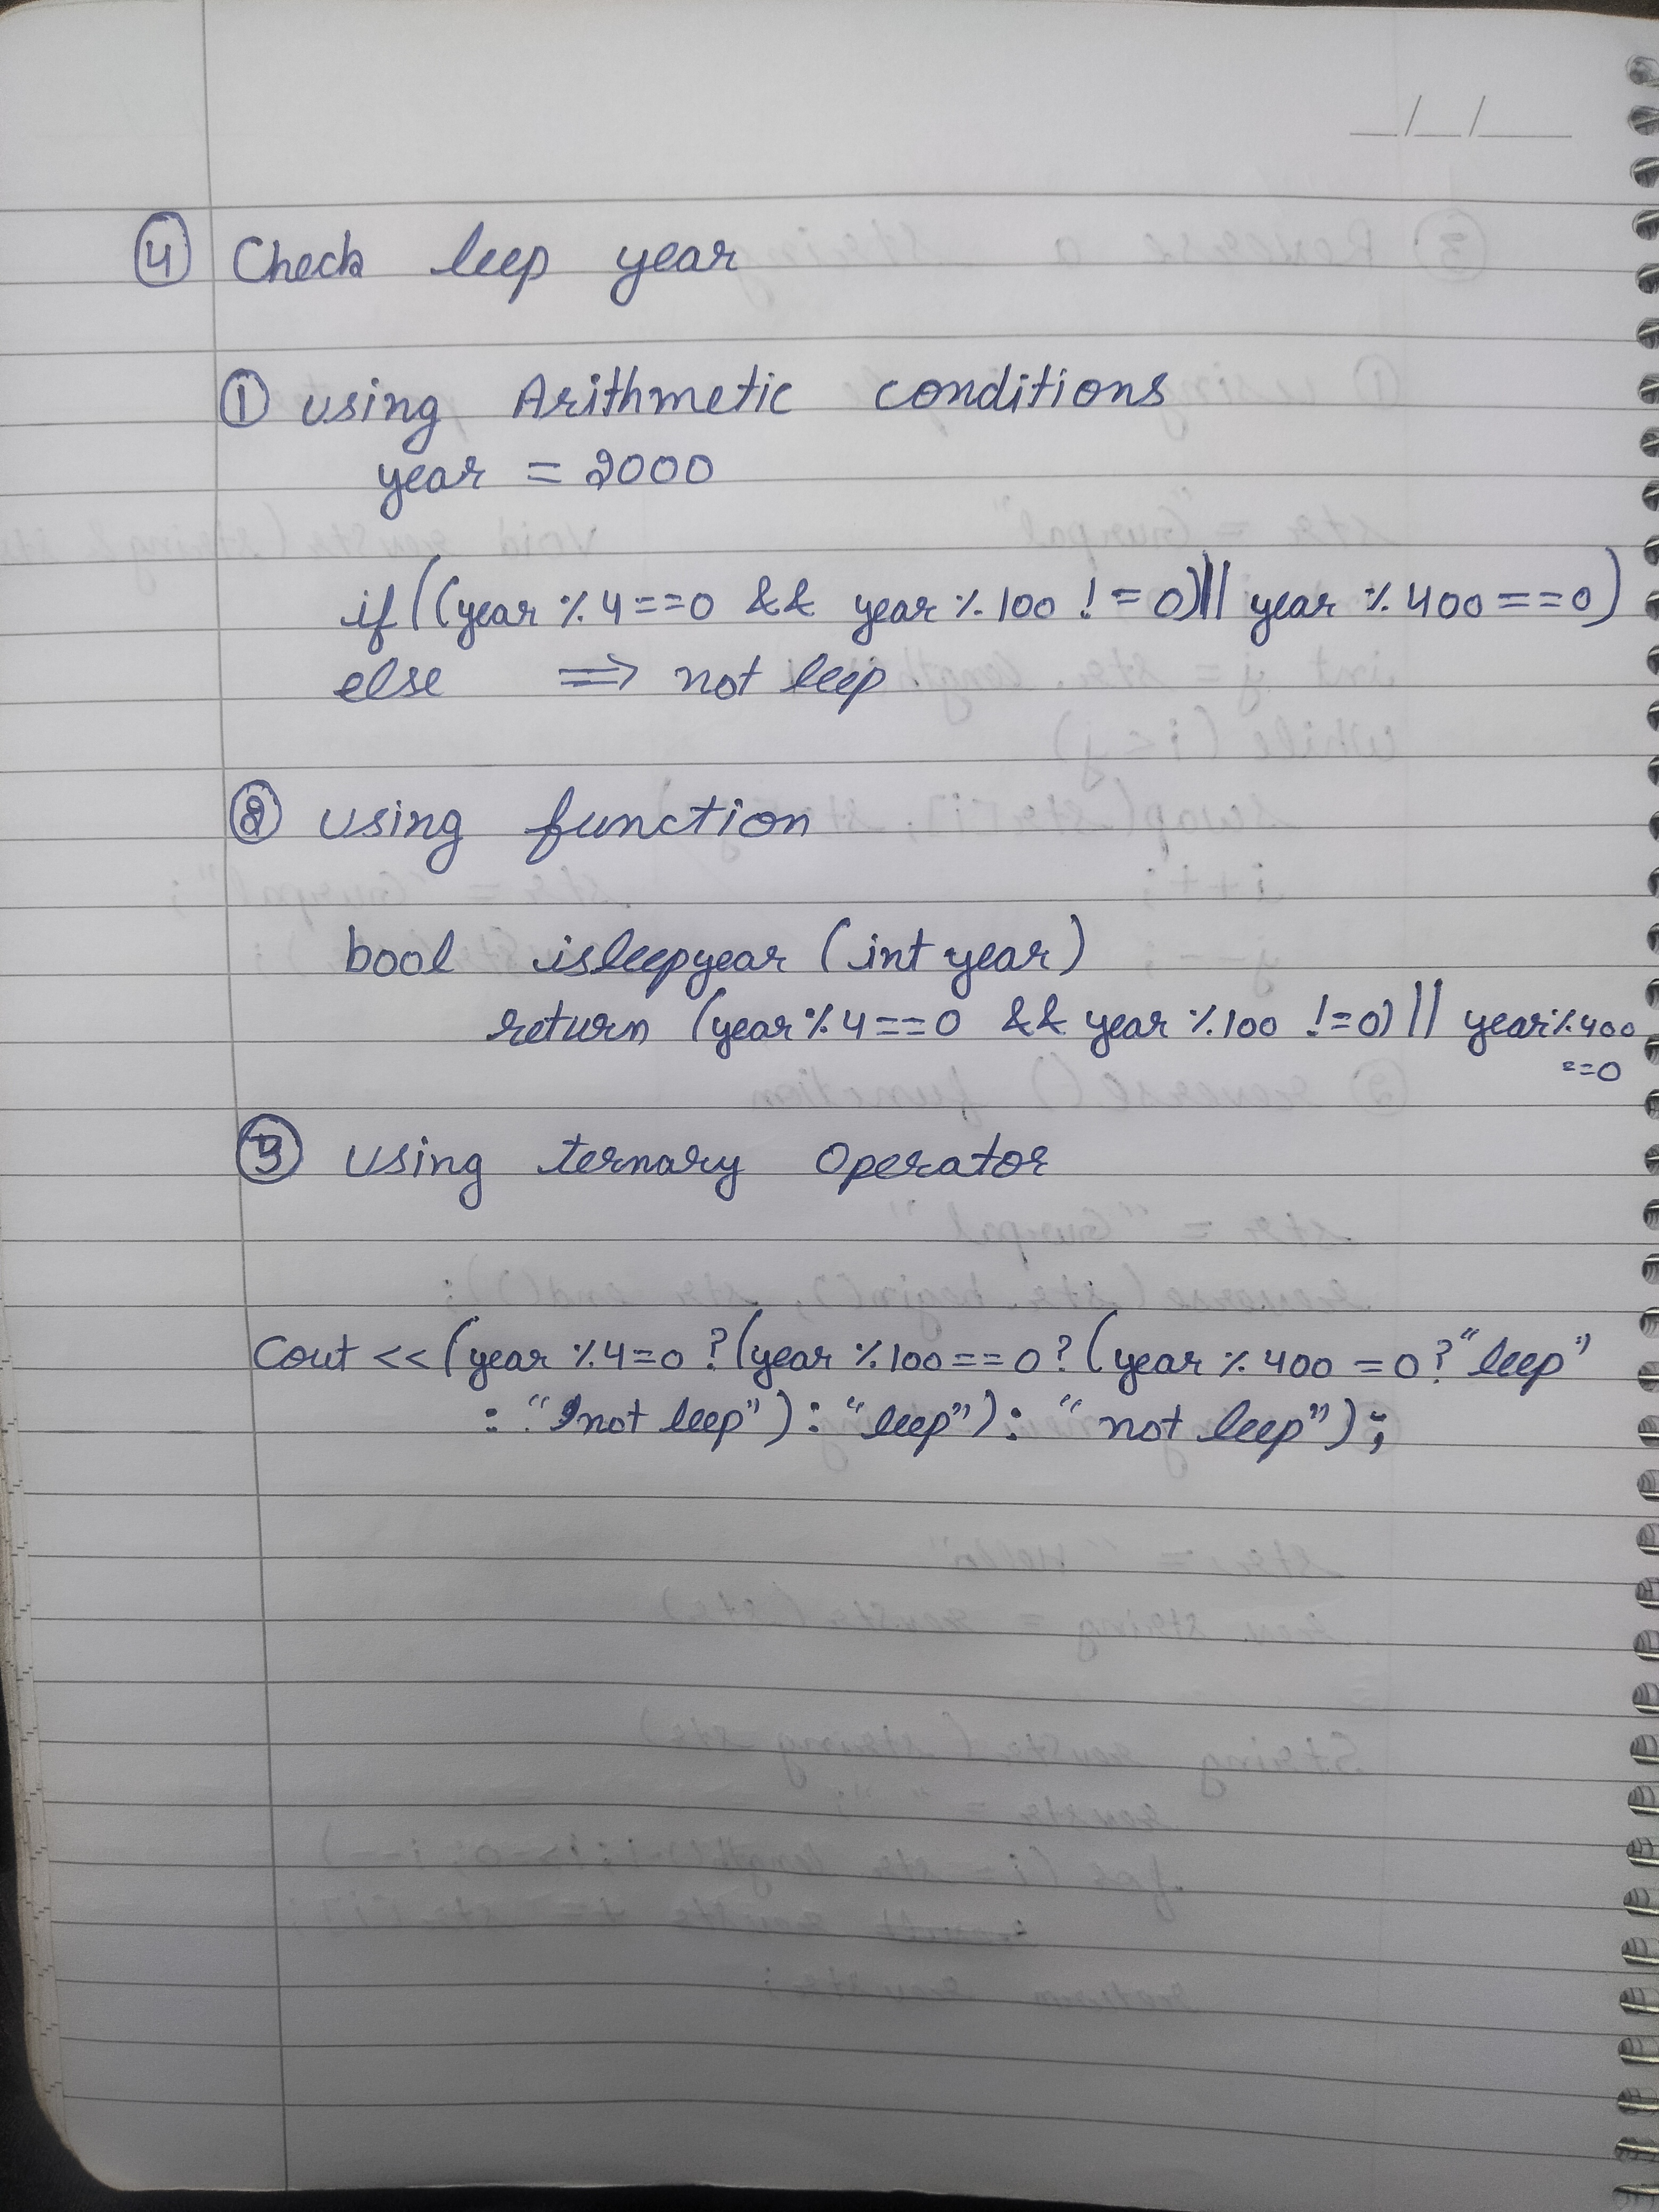 ④ Check leep year
① using Arithmetic conditions
year = 2000
if((year % 4==0 && year % 100 != 0)|| year % 400==0)
else ⟹ not leep
② using function
bool isleepyear (int year)
return (year%4==0 && year %100 !=0) || year%400
==0
③ using ternary operator
Cout << (year %4=0 ? (year %100==0? (year % 400 =0? "leep"
: "not leep") : "leep") : "not leep");